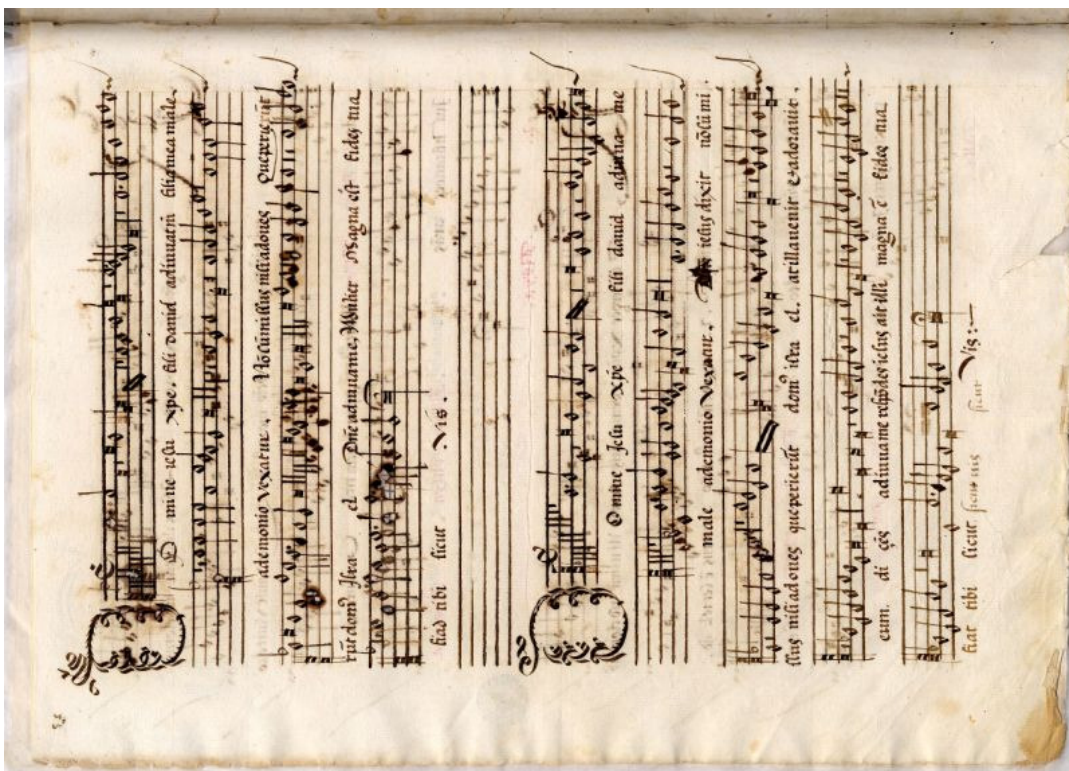 O mine iesu xpe. fili david adiuuam filia mea male
ademonio vexatur. Nō sum issus nisi ad oues Que perierūt
rūt domꝰ isra el Dñe adiuua me, Mulier Magna est fides tua
fiad tibi sicut Vis.
O mine Jesu xpe fili david adiuua me
male ademonio Vexatur. iesus dixit nō sū mi
ssus nisi ad oues que perierūt domꝰ isra el. at illa uenit & adorauit.
eum. di cēs adiuua me respōdēs iesus ait illi, magna ē fides tua
fiat tibi sicut sicut uis sicut Vis:~